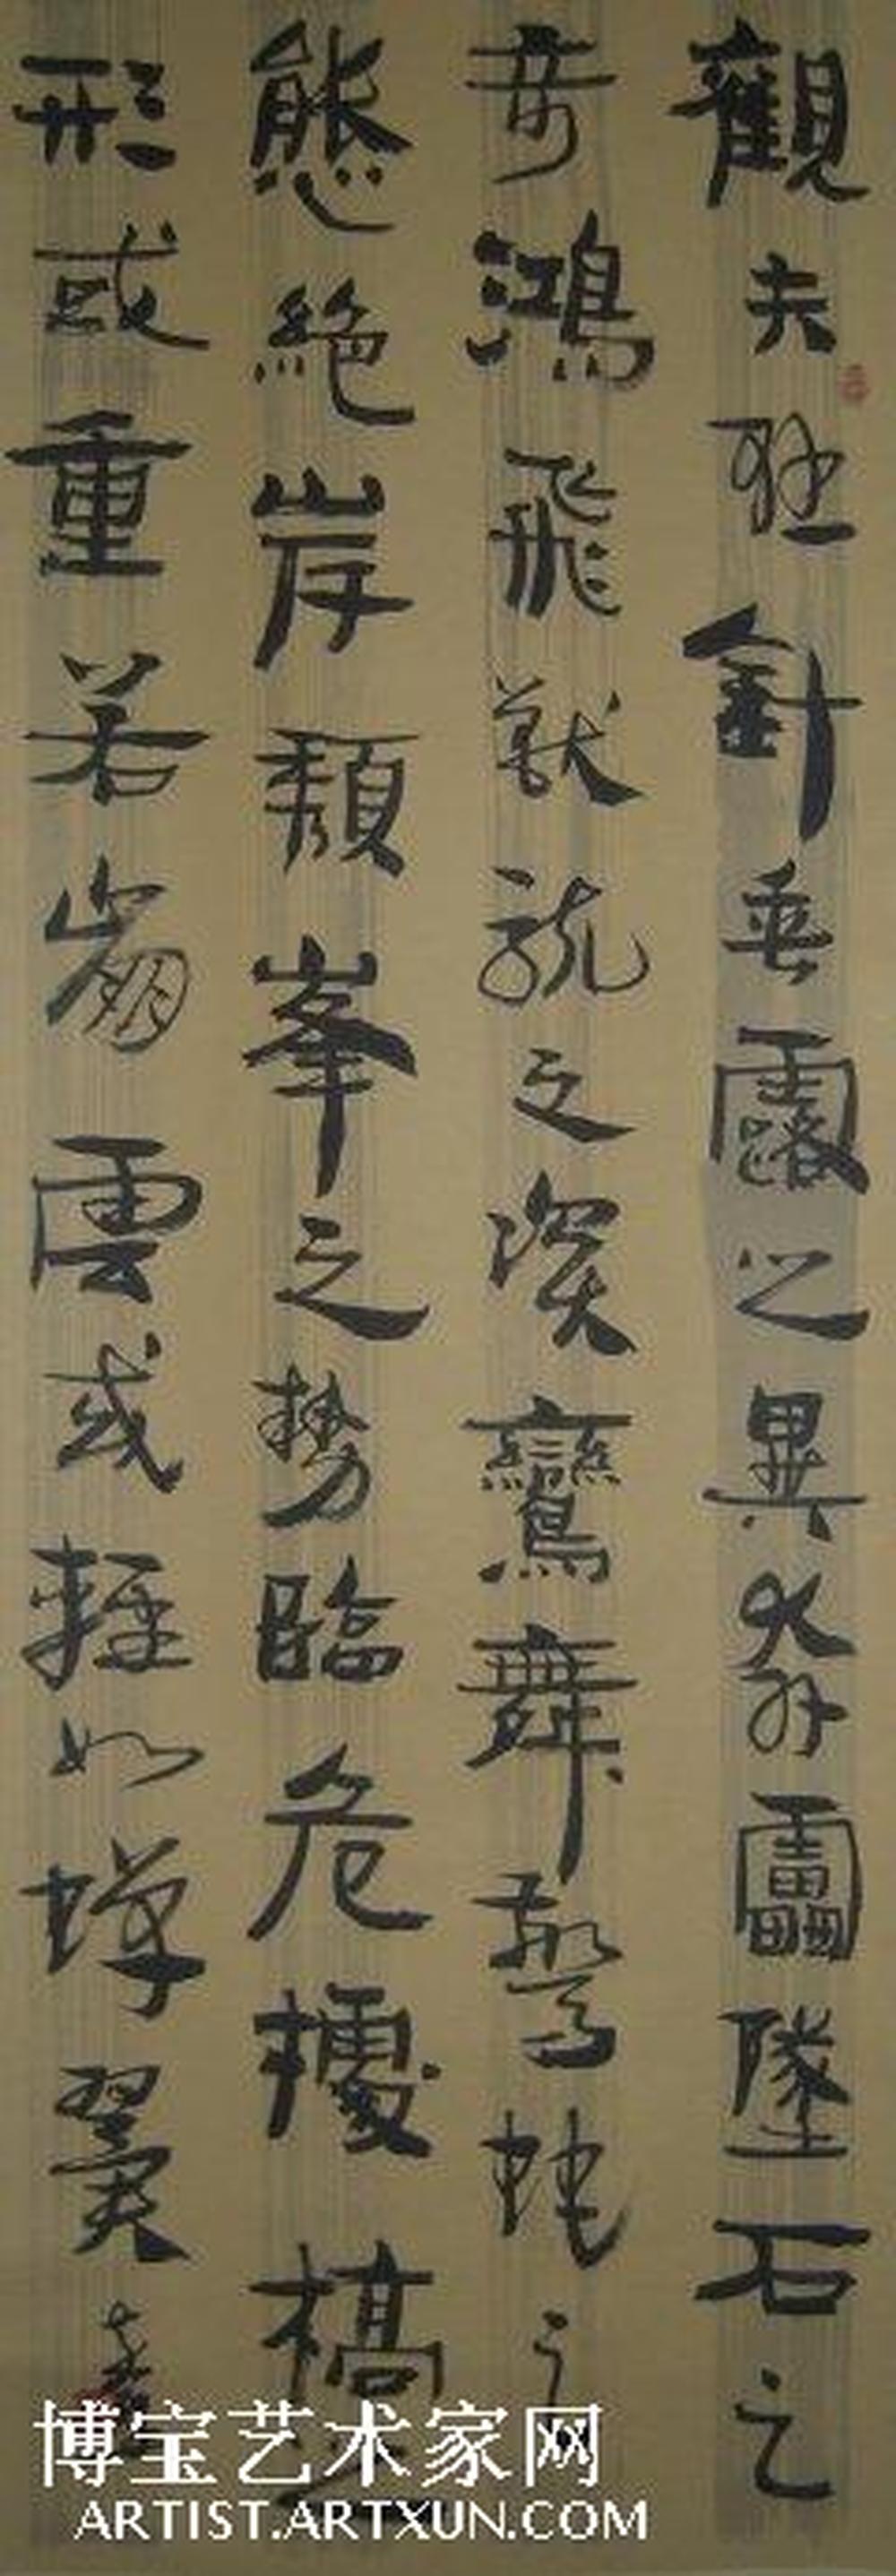 觀夫懸針垂露之異奔雷墜石之
奇鴻飛獸駭之資鸞舞驚蛇之
態絕岸頹峯之勢臨危據槁之
形或重若崩雲或輕如蟬翼
博宝艺术家网
ARTIST.ARTXUN.COM